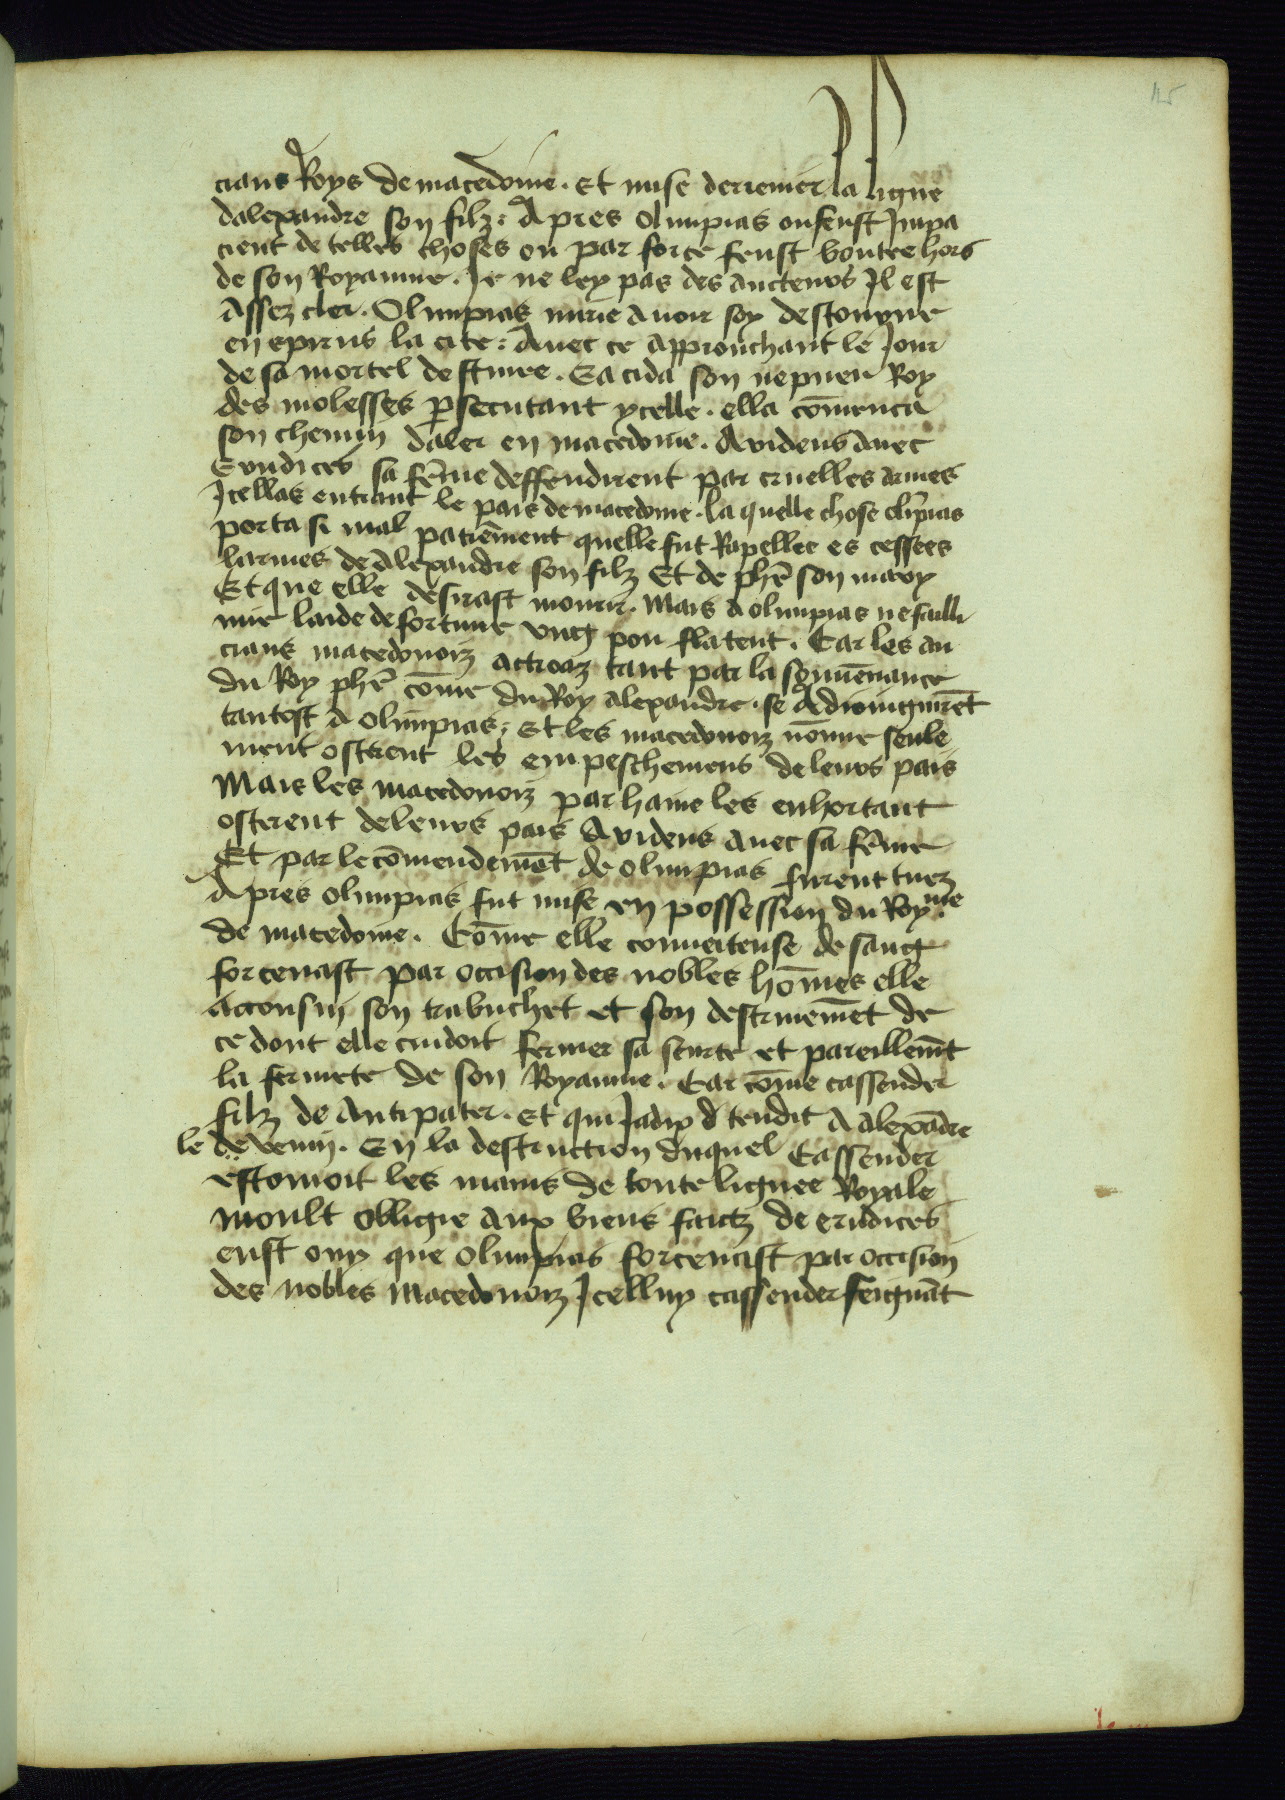 cians Roys de macedoine. Et mise derrenier la ligne
dalexandre son filz. Apres olimpias ou feust Impa
cient de telles choses ou par force feust boutee hors
de son Royaume. Je ne ley pas des aucteurs Il est
Assez cler. Olimpias mire avoir soy destourne
en epirus la cite. Avec ce approuchant le Jour
de sa mortel destinee. Eacida son nepueu Roy
des molesses p̱secutant ycelle. ella com̄enca
son chemin daler en macedoine. Arideus avec
Eurdices sa fem̄e deffendirent par cruelles armes
Icellas entrant le pais de macedoine. la quelle chose olīpias
porta si mal paciem̄ent quelle fut Rapellee es cessees
larmes de Alexandre son filz Et de phē son mary
Et que elle desirast mourir. Mais a olimpias ne failli
mie laide de fortune ung pou flatent. Car les an
cians macedonoiz actroiz tant par la souuēnance
du Roy phē com̄e du Roy alexandre. se Adioingnirēt
tantost a olimpias. Et les macedonoiz nōnme seule
ment osterent les empeschemens de leurs pais
Mais les macedonoiz par haine les enhortant
osterent de leurs pais Arideus avec sa fem̄e
Et par le com̄endemēt de olimpias furent tuez
Apres olimpias fut mise en possession du Royme
de macedoine. Com̄e elle convoiteuse de sang
forcenast par occision des nobles hom̄es elle
acconsui son trabuchet et son destruiemēt de
ce dont elle cuidoit fermer sa seurte et pareillemēt
la fermete de son Royaume. Car com̄e cassender
filz de Antipater. Et qui Jadix d tendit A alexādre
le devenin. En la destruction duquel Cassender
estonoit les mains de toute lignee Royale
moult obligie aux biens faictz de erudices
eust ouy que olimpias forcenast par occision
des nobles macedonoiz Icelluy cassender feignāt